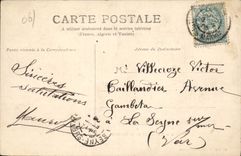 06
CARTE POSTALE
A utiliser seulement
(France, Algérie et Tunisie)
Partie réservée à la Correspondance
Adresse du Destinataire
Sincères
salutations
Mr Villecroze Victor
Taillandier Avenue
Gambeta
La Seyne sur
mer
(Var)
LA SEYNE